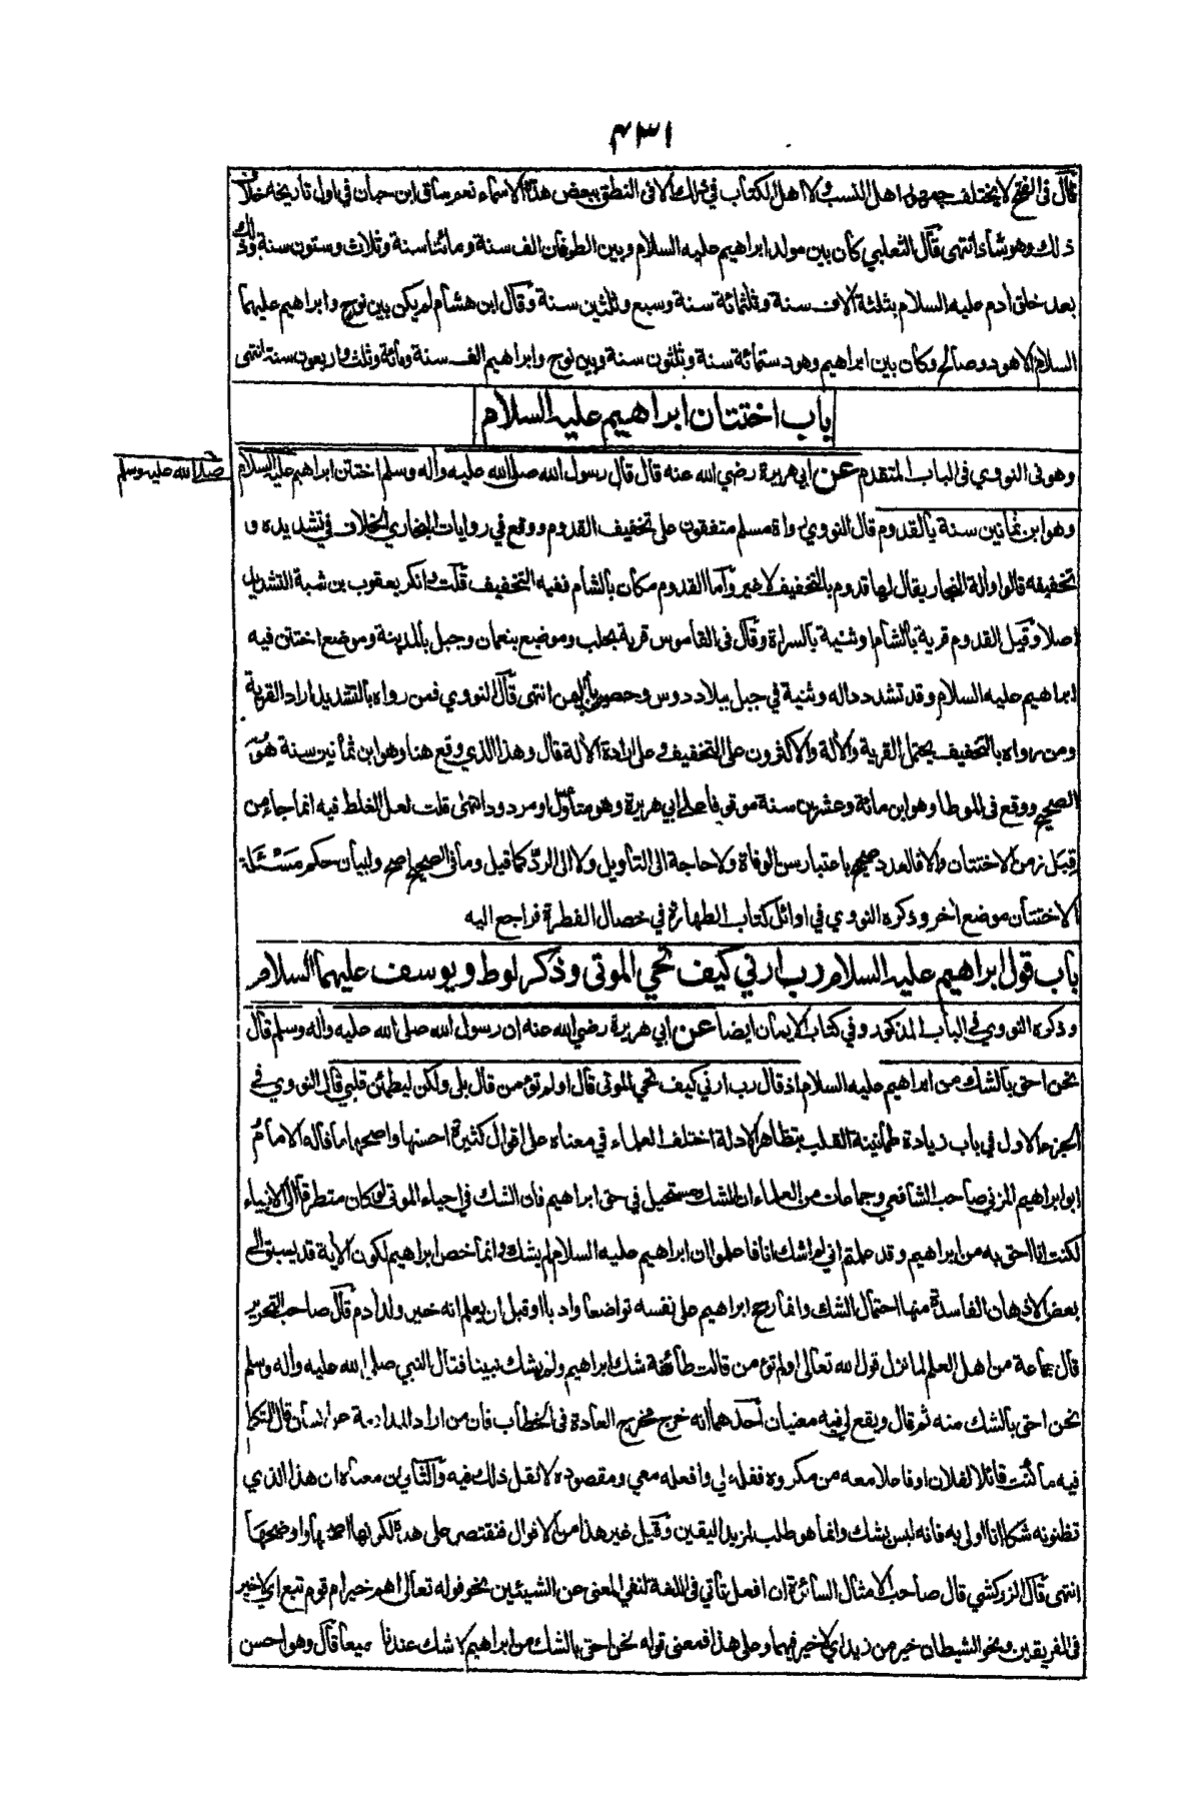 ٤٣١
قال في الفتح لا يختلف جمهور اهل النسب ولا اهل الكتاب في ذلك الا في النطق ببعض هذه الاسماء نعم ساق ابن حبان في اول تاريخه خلاف
ذلك وهو شاذ انتهى قال الثعلبي كان بين مولد ابراهيم عليه السلام وبين الطوفان الف سنة ومائتا سنة وثلاث وستون سنة وذلك
بعد خلق ادم عليه السلام بثلثة الاف سنة وثلثمائة سنة وسبع وثلثين سنة وقال ابن هشام لم يكن بين نوح وابراهيم عليهما
السلام الا هود وصالح وكان بين ابراهيم وهود ستمائة سنة وثلثون سنة وبين نوح وابراهيم الف سنة ومائة وثلث واربعون سنة انتهى
باب اختتان ابراهيم عليه السلام
وهو في النووي في الباب المتقدم عن ابي هريرة رضي الله عنه قال قال رسول الله صلى الله عليه وأله وسلم اختتن ابراهيم عليه السلام
صلى الله عليه وسلم
وهو ابن ثمانين سنة بالقدوم قال النووي رواة مسلم متفقون على تخفيف القدوم ووقع في روايات البخاري الخلاف في تشديده و
تخفيفه قالوا وألة النجار يقال لها قدوم بالتخفيف لا غير وأما القدوم مكان بالشام ففيه التخفيف قلت وانكر يعقوب بن شبة التشديد
اصلا وقيل القدوم قرية بالشام او ثنية بالسراة وقال في القاموس قرية بحلب وموضع بنعمان وجبل بالمدينة وموضع اختتن فيه
ابراهيم عليه السلام وقد تشدد داله وثنية في جبل ببلاد دوس وحصن باليمن انتهى قال النووي فمن رواه بالتشديد اراد القرية
ومن رواه بالتخفيف يحتمل القرية والألة والاكثرون على التخفيف وعلى ارادة الألة قال وهذا الذي وقع هنا وهو ابن ثمانين سنة هو
الصحيح ووقع في الموطا وهو ابن مائة وعشرين سنة موقوفا على ابي هريرة وهو متأول او مردود انتهى قلت لعل الغلط فيه انما جاء من
قبل زمن الاختتان والا فالعدد صحيح باعتبار سن الوفاة ولا حاجة الى التأويل ولا الى الرد كما قيل وما في الصحيح اصح ولبيان حكم مسئلة
الاختتان موضع أخر وذكره النووي في اوائل كتاب الطهارة في خصال الفطرة فراجع اليه
باب قول ابراهيم عليه السلام رب ارني كيف تحي الموتى وذكر لوط ويوسف عليهما السلام
وذكره النووي في الباب المذكور وفي كتاب الايمان ايضا عن ابي هريرة رضي الله عنه ان رسول الله صلى الله عليه وأله وسلم قال
نحن احق بالشك من ابراهيم عليه السلام اذ قال رب ارني كيف تحي الموتى قال اولم تؤمن قال بلى ولكن ليطمئن قلبي قال النووي في
الجزء الاول في باب زيادة طمانينة القلب بتظاهر الادلة اختلف العلماء في معناه على اقوال كثيرة احسنها واصحها ما قاله الامام
ابو ابراهيم المزني صاحب الشافعي وجماعات من العلماء ان الشك مستحيل في حق ابراهيم فان الشك في احياء الموتى لو كان متطرقا الى الانبياء
لكنت انا احق به من ابراهيم وقد علمتم اني لم اشك انا فاعلموا ان ابراهيم عليه السلام لم يشك وانما خص ابراهيم لكون الأية قد يسبق الى
بعض الاذهان الفاسدة منها احتمال الشك وانما رجح ابراهيم على نفسه تواضعا وادبا او قبل ان يعلم انه خير ولد أدم قال صاحب التحرير
قال جماعة من اهل العلم لما نزل قول الله تعالى اولم تؤمن قالت طائفة شك ابراهيم ولم يشك نبينا فقال النبي صلى الله عليه وأله وسلم
نحن احق بالشك منه ثم قال ويقع لي فيه معنيان أحدهما انه خرج مخرج العادة في الخطاب فان من اراد المدافعة عن انسان قال للمتكلم
فيه ما كنت قائلا لفلان او فاعلا معه من مكروه فقله لي وافعله معي ومقصوده لا تقل ذلك فيه والثاني ان معناه ان هذا الذي
تظنونه شكا انا اولى به فانه ليس بشك وانما هو طلب لمزيد اليقين وقيل غير هذا من الاقوال فنقتصر على هذه لكونها اصحها واوضحها
انتهى قال الزركشي قال صاحب الامثال السائرة ان افعل تأتي في اللغة لنفي المعنى عن الشيئين نحو قوله تعالى اهم خير ام قوم تبع اي لا خير
في الفريقين ونحو الشيطان خير من زيد اي لا خير فيهما وعلى هذا فمعنى قوله نحن احق بالشك من ابراهيم لا شك عندنا جميعا قال وهو احسن